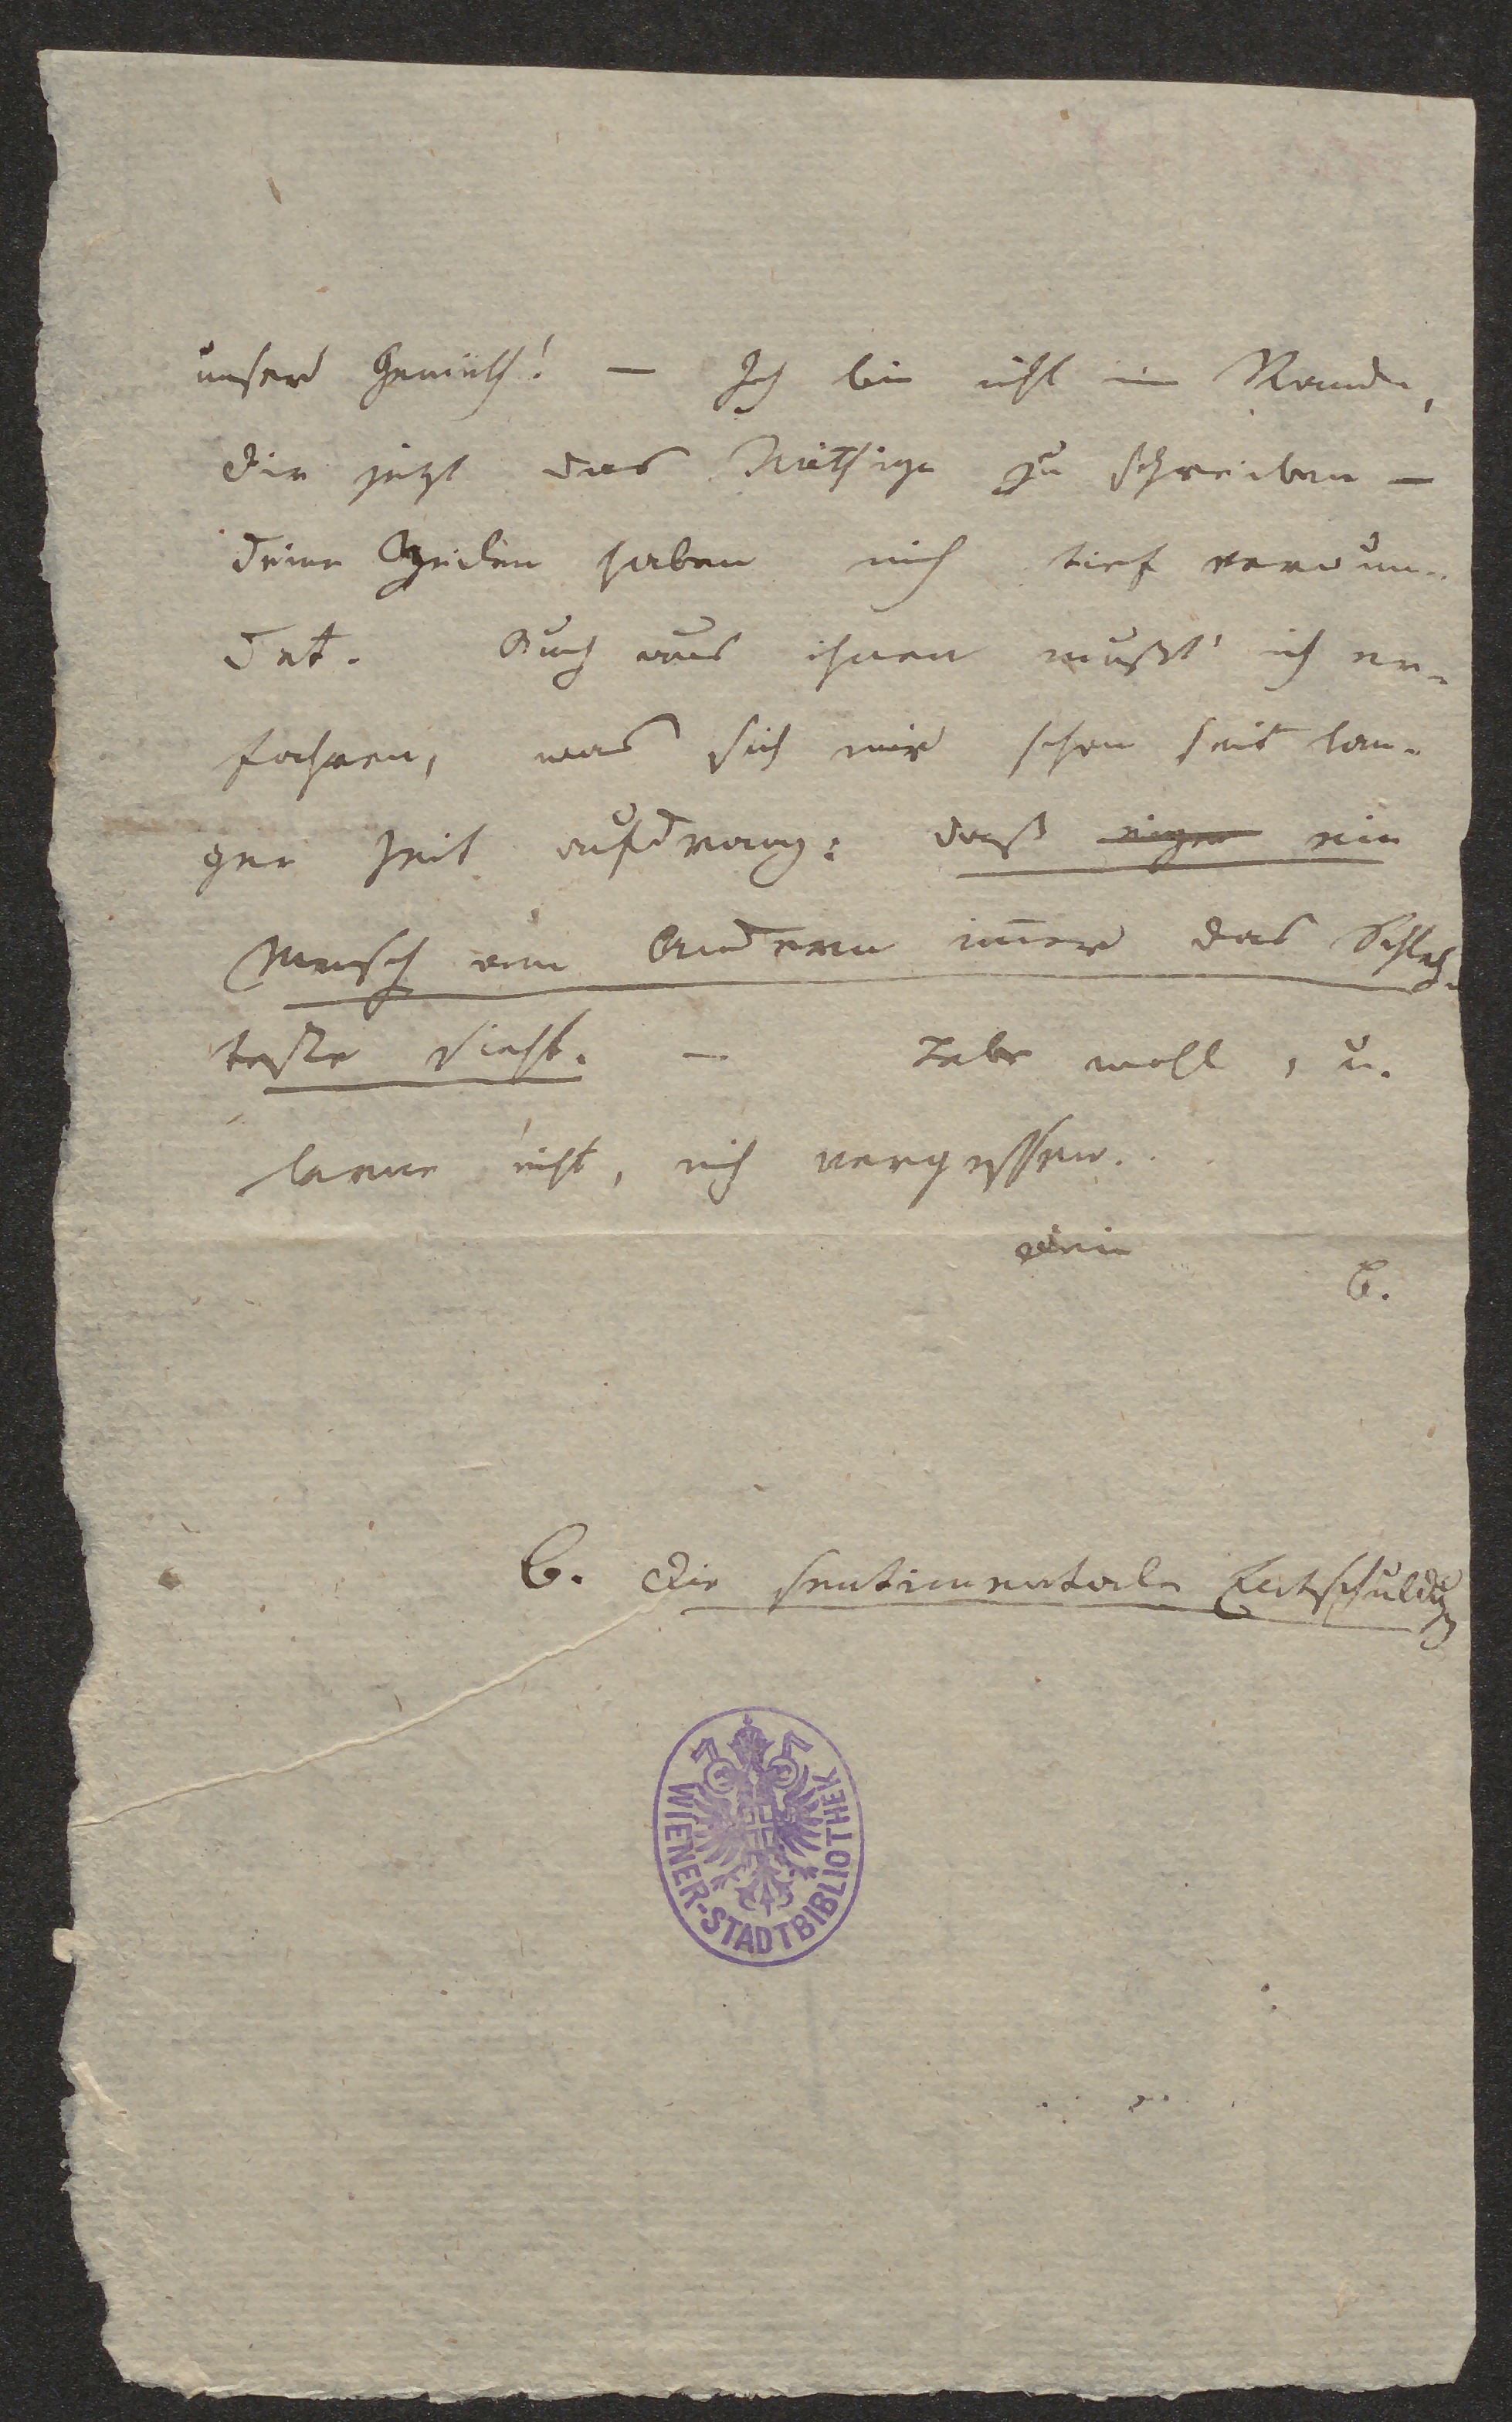 unser Gemüth! — Ich bin nicht im Stande,
dir jetzt das Nöthige zu schreiben —
deine Zeilen haben mich tief verwun-
det. Auch aus ihnen mußt' ich er-
fahren, was sich mir schon seit lan-
ger Zeit aufdrang: daß ein
Mensch vom Andern immer das Schlech-
teste sieht. — Lebe wohl, u.
lerne nicht, mich vergessen.
dein
B.
B. die sentimentale Entschuldig
WIENER-STADTBIBLIOTHEK